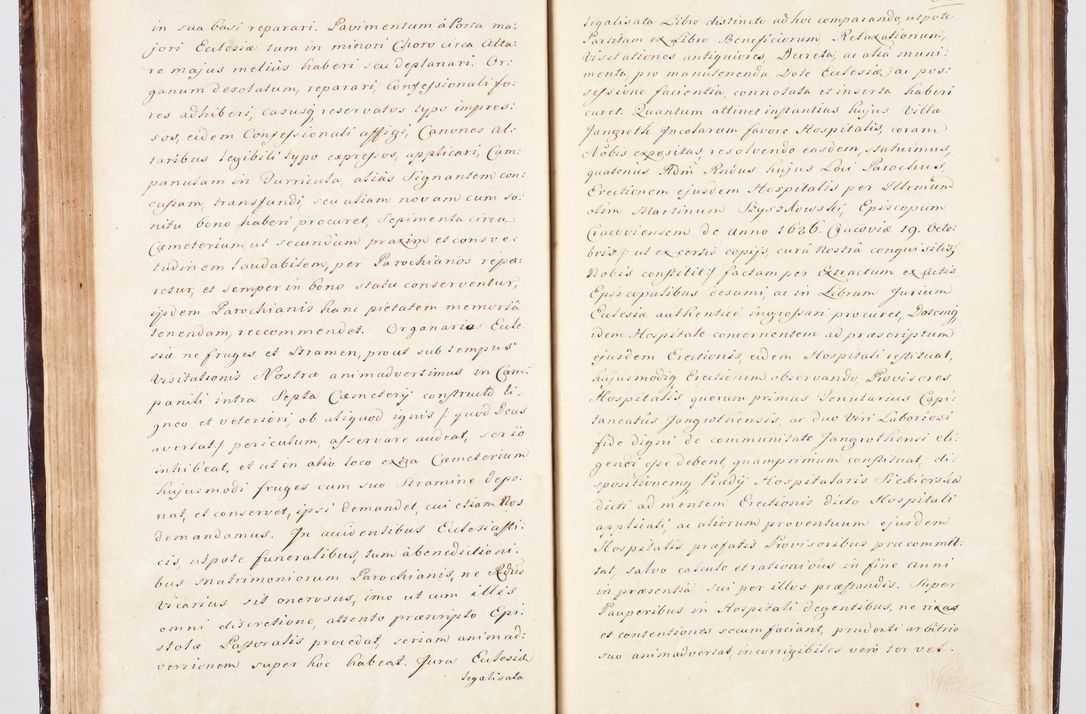 in sua basi reparari. Pavimentum à Porta ma-
jori Ecclesiæ tum in minori Choro circa Alta-
re majus meliùs haberi seu deplanari. Or-
ganum desolatum, reparari, Confessionali fo-
res adhiberi, casusq reservatos typo impres-
sos, eidem Confessionali affigi, Canones al-
taribus legibili typo expressos, applicari, Cam-
panulam in Turricula, aliàs Signantem con-
cussam, transfundi, seu aliam novam cum so-
nitu bono haberi procuret, Sepimenta circa
Cæmeterium, ut secundum praxim et consve-
tudinem laudabilem, per Parochianos repa-
retur, et semper in bono statu conserventur,
ijsdem Parochianis hanc pietatem memoriâ
tenendam, reccommendet. Organario Eccle-
siæ ne fruges et Stramen, prout sub tempus
Visitationis Nostræ animadvertimus in Cam-
panili intra Septa Cæmeterij constructo li-
gneo et veteriori, ob aliquod ignis /: quod Deus
avertat :/ periculum, asservare audeat, serio
inhibeat, et ut in alio loco extra Cæmeterium
hujusmodi fruges cum suo Stramine depo-
nat, et conservet, ipsi demandet, cui etiam Nos
demandamus. In accidentibus Ecclesiasti-
cis, utpote funeralibus, tum à benedictioni-
bus matrimoniorum Parochianis, ne Rdus
Vicarius sit onerosus, imo ut cum illis
omni discretione, attento præscripto Epi-
stolæ Pastoralis procedat, seriam animad-
versionem super hoc habeat. Jura Ecclesiæ
legalisata
legalisata Libro distincto ad hoc comparando, utpote
Partitam ex Libro Beneficiorum, Retaxationum,
Visitationes antiquiores, Decreta, ac alia muni-
menta, pro manutenenda Dote Ecclesiæ ac pos-
sessione facientia, connotata et inserta haberi
curet. Quantum attinet instantias hujus Villæ
Jangroth Incolarum favore Hospitalis, coram
Nobis expositas, resolvendo easdem, statuimus,
quatenus Adm Rndus hujus Loci Parochus,
Erectionem ejusdem Hospitalis per Illrmum
olim Martinum Szyszkowski, Episcopum
Cracoviensem de anno 1626. Cracoviæ 19. Octo-
bris /: ut ex certis copijs, curâ Nostrâ conquisitis,
Nobis constitit :/ factam per Extractum ex Actis
Episcopalibus desumi, ac in Librum Jurium
Ecclesiæ authenticè ingrossari procuret, Dotemq
idem Hospitale concernentem ad præscriptum
ejusdem Erectionis, eidem Hospitali restituat,
hujusmodiq Erectionem observando, Provisores
Hospitalis quorum primus Tenutarius Capi-
taneatus Jangrothensis, ac duo Viri Laboriosi
fide digni de communitate Jangrothensi eli-
gendi esse debent, quamprimum constituat, di-
spositionemq Prædij Hospitalaris Siekierska
dicti ad mentem Erectionis dicto Hospitali
applicati, ac aliorum proventuum ejusdem
Hospitalis præfatis Provisoribus præcommit-
tat, salvo calculo et rationibus in fine anni
in præsentia sui per illos præstandis. Super
Pauperibus in Hospitali degentibus, ne rixas
et contentiones secum faciant, prudenti arbitrio
suo animadvertat, incorrigibiles verò ter vel-